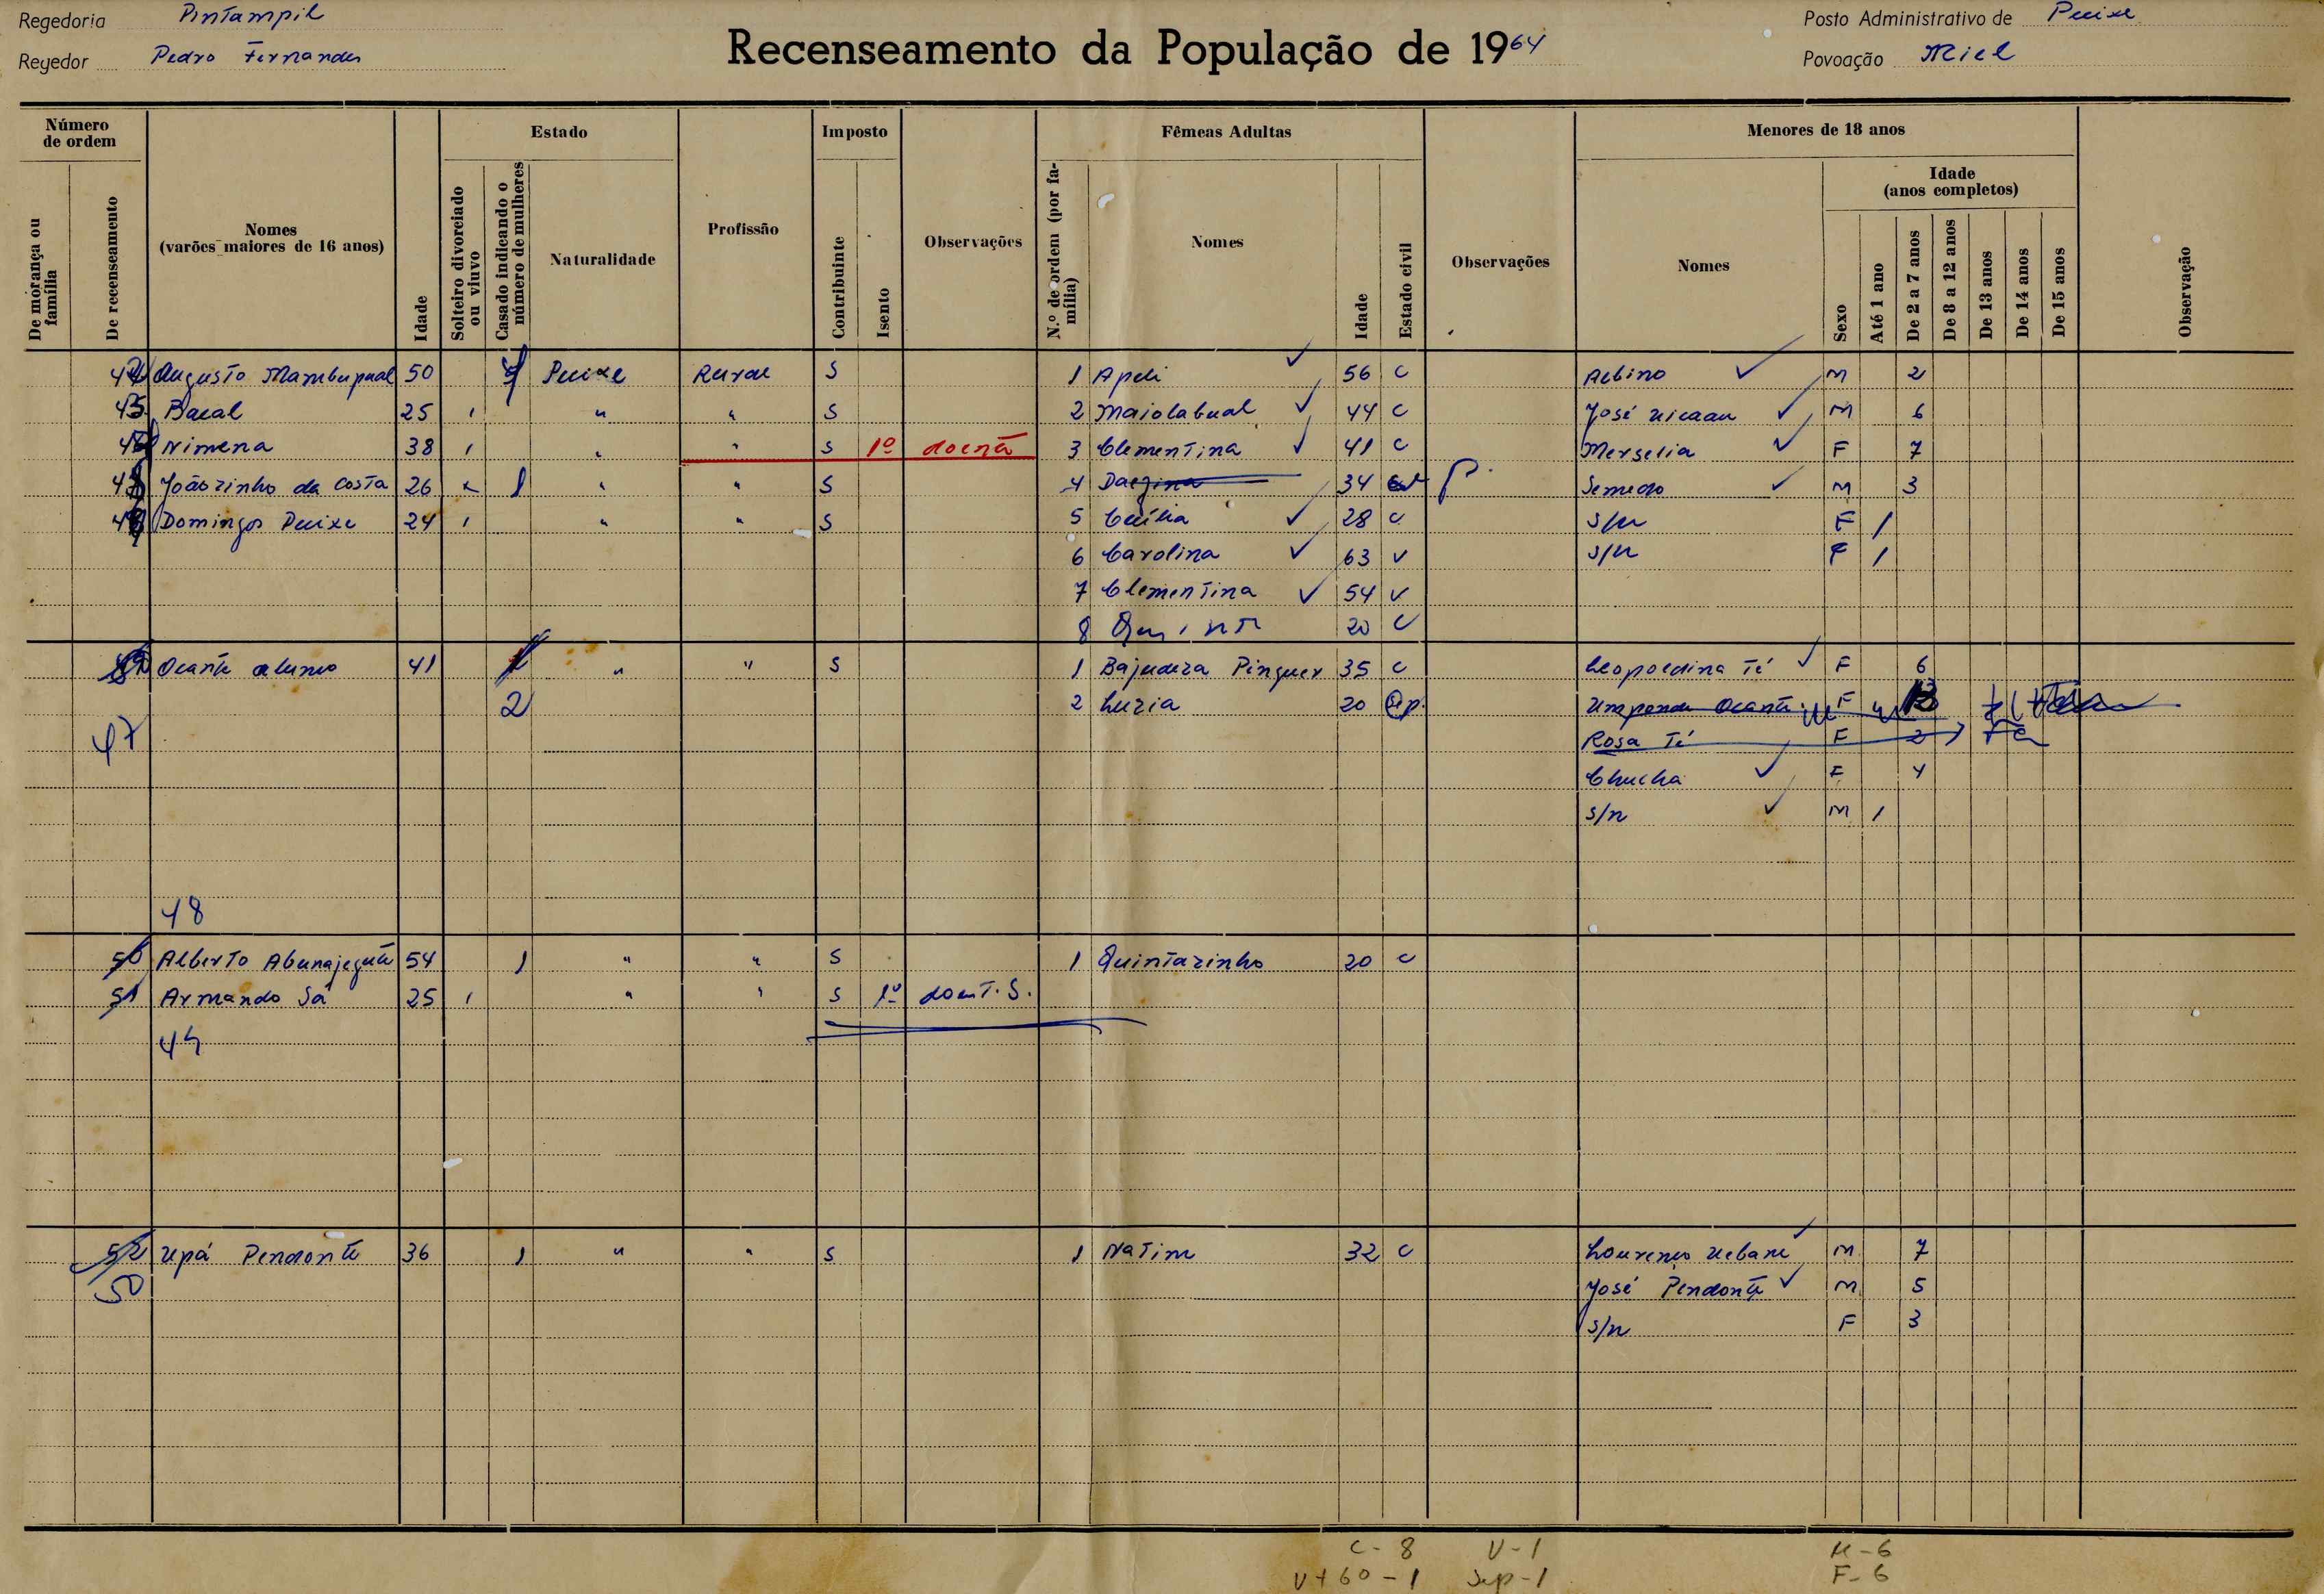 Regedoria Pintampil
Posto Administrativo de Peixe
Regedor Pedro Fernandes
Recenseamento da População de 1964
Povoação Miel
Número de ordem
Estado
Imposto
Fêmeas Adultas
Menores de 18 anos
De morança ou família
De recenseamento
Nomes (varões maiores de 16 anos)
Idade
Solteiro divorciado ou viuvo
Casado indicando o número de mulheres
Naturalidade
Profissão
Contribuinte
Isento
Observações
N.º de ordem (por família)
Nomes
Idade
Estado civil
Observações
Nomes
Sexo
Idade (anos completos)
Até 1 ano
De 2 a 7 anos
De 8 a 12 anos
De 13 anos
De 14 anos
De 15 anos
Observação
Augusto Mambupual 50 Peixe Rural S 1 Apeli 56 C Albino M 2
Bacal 25 ' " " S 2 Maiolabual 44 C José M 6
Nimena 38 ' " " S 1º doente 3 Clementina 41 C Merselia F 7
Joãozinho da Costa 26 1 " " S 4 34 Semedo M 3
Domingos Peixe 24 ' " " S 5 Cecília 28 C S/n F 1
6 Carolina 63 V S/n F 1
7 Clementina 54 V
8 20 C
Ocante 41 " " S 1 Bajudeza Pinguer 35 C Leopoldina Té F 6
2 2 Luzia 20 Sep. Umpende Ocante F
47 Rosa Té F 2
Chucha F 4
S/n M 1
48
50 Alberto Abunajegute 54 1 " " S 1 Quintazinho 20 C
51 Armando Sá 25 ' " " S 1º doent. S.
49
52 Upá Pendonte 36 1 " " S 1 Natim 32 C Lourenço M 7
50 José Pendonte M 5
S/n F 3
C - 8 V - 1 M - 6
V + 60 - 1 Sep - 1 F - 6